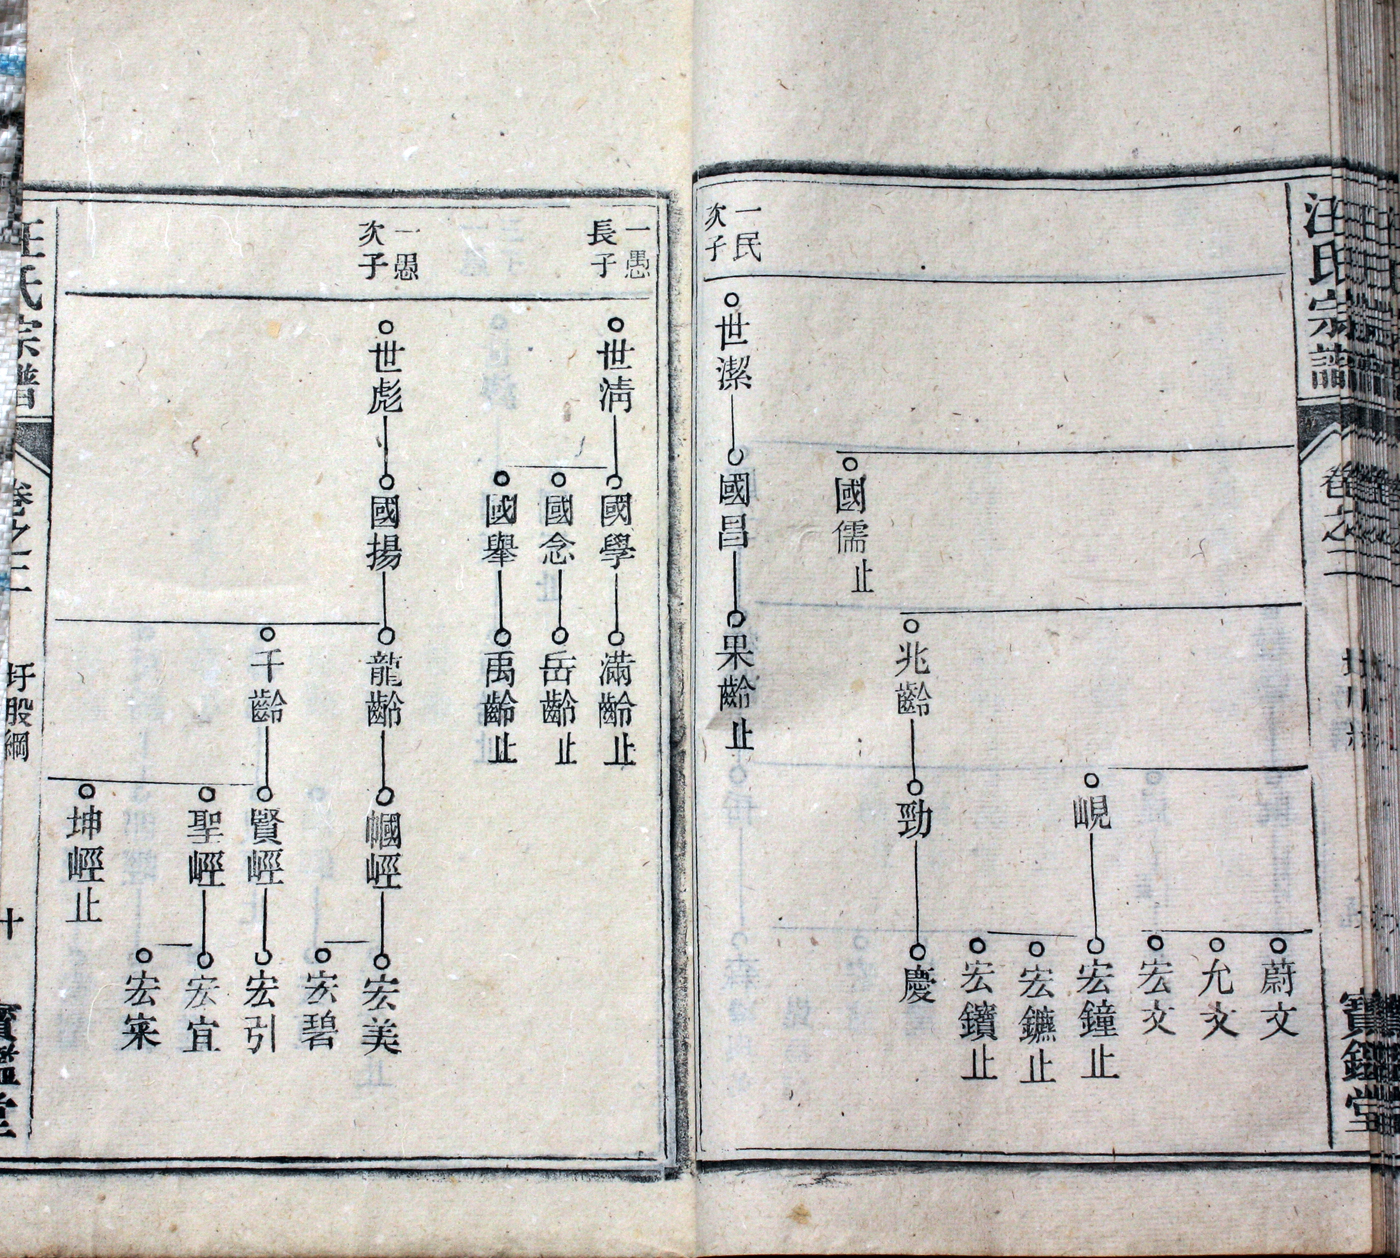 汪氏宗譜
卷之二
寶鑑堂
蔚文
允文
宏文
峴
宏鐘止
宏鑣止
宏鑽止
兆齡
勁
慶
國儒止
一民
次子
世潔
國昌
果齡止
一愚
長子
世淸
國學
滿齡止
國念
岳齡止
國舉
禹齡止
一愚
次子
世彪
國揚
龍齡
嶇峌
宏美
宏碧
千齡
賢峌
宏引
聖峌
宏宜
宏寀
坤峌止
汪氏宗譜
卷之二
圩股綱
十
寶鑑堂